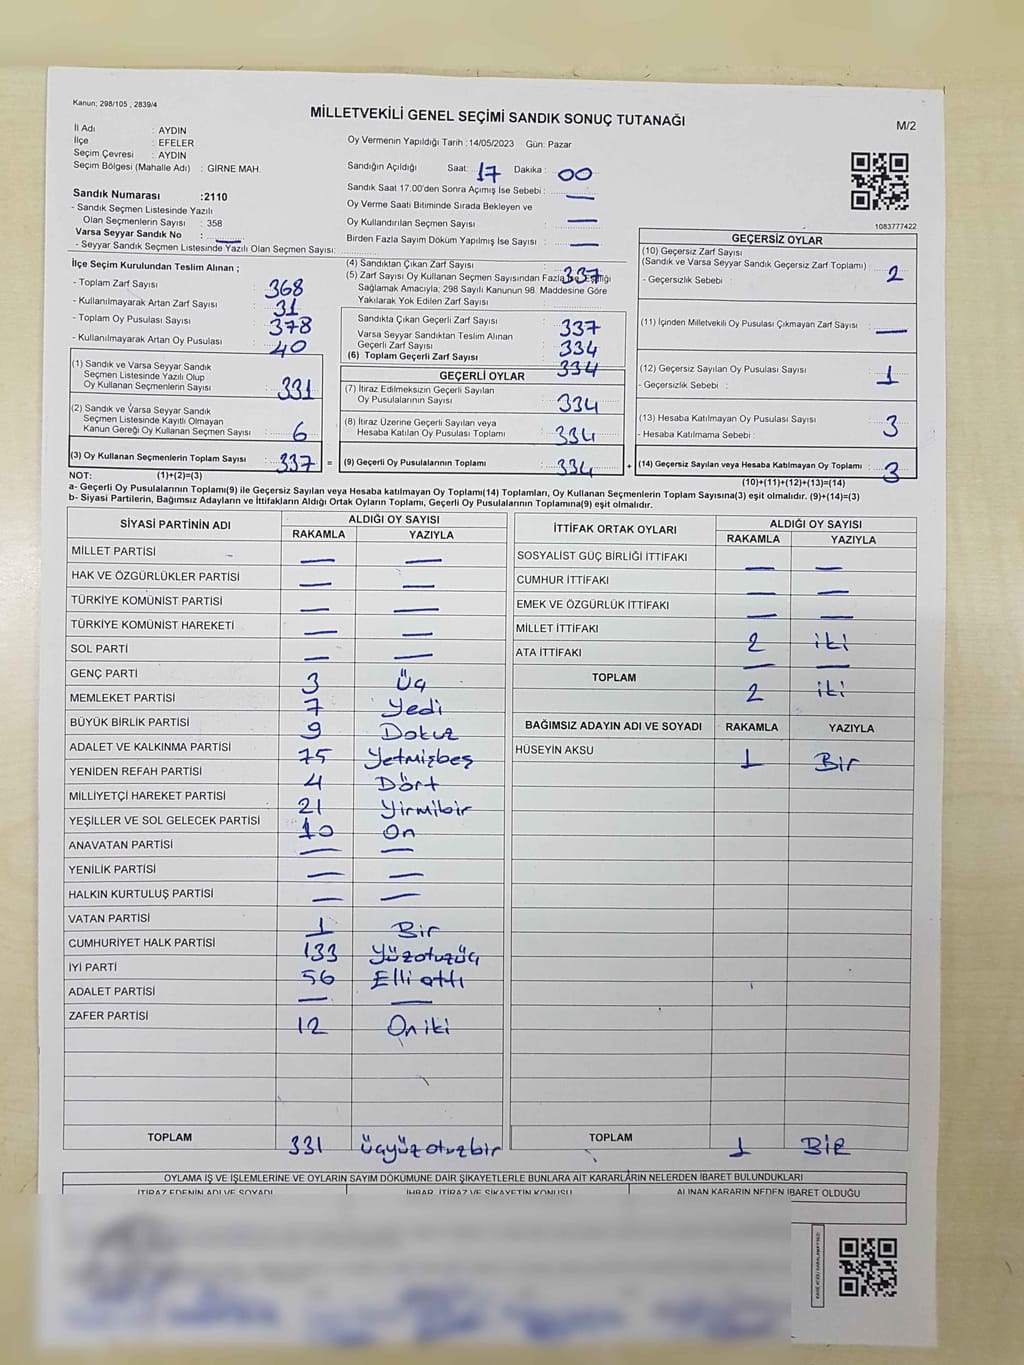 Kanun; 298/105 , 2839/4
MİLLETVEKİLİ GENEL SEÇİMİ SANDIK SONUÇ TUTANAĞI
M/2
İl Adı : AYDIN
İlçe : EFELER
Seçim Çevresi : AYDIN
Seçim Bölgesi (Mahalle Adı) : GİRNE MAH.
Oy Vermenin Yapıldığı Tarih :14/05/2023 Gün: Pazar
Sandığın Açıldığı Saat: 17 Dakika : 00
Sandık Saat 17:00'den Sonra Açımış İse Sebebi : —
Oy Verme Saati Bitiminde Sırada Bekleyen ve
Oy Kullandırılan Seçmen Sayısı : —
Birden Fazla Sayım Döküm Yapılmış İse Sayısı : —
1083777422
Sandık Numarası :2110
- Sandık Seçmen Listesinde Yazılı
Olan Seçmenlerin Sayısı : 358
Varsa Seyyar Sandık No : —
- Seyyar Sandık Seçmen Listesinde Yazılı Olan Seçmen Sayısı:
İlçe Seçim Kurulundan Teslim Alınan ;
- Toplam Zarf Sayısı : 368
- Kullanılmayarak Artan Zarf Sayısı : 31
- Toplam Oy Pusulası Sayısı : 378
- Kullanılmayarak Artan Oy Pusulası : 40
(1) Sandık ve Varsa Seyyar Sandık
Seçmen Listesinde Yazılı Olup
Oy Kullanan Seçmenlerin Sayısı : 331
(2) Sandık ve Varsa Seyyar Sandık
Seçmen Listesinde Kayıtlı Olmayan
Kanun Gereği Oy Kullanan Seçmen Sayısı : 6
(3) Oy Kullanan Seçmenlerin Toplam Sayısı : 337 =
(4) Sandıktan Çıkan Zarf Sayısı : 337
(5) Zarf Sayısı Oy Kullanan Seçmen Sayısından Fazla İse, Eşitliği
Sağlamak Amacıyla; 298 Sayılı Kanunun 98. Maddesine Göre
Yakılarak Yok Edilen Zarf Sayısı :
Sandıkta Çıkan Geçerli Zarf Sayısı : 337
Varsa Seyyar Sandıktan Teslim Alınan
Geçerli Zarf Sayısı : 334
(6) Toplam Geçerli Zarf Sayısı : 334
GEÇERLİ OYLAR
(7) İtiraz Edilmeksizin Geçerli Sayılan
Oy Pusulalarının Sayısı : 334
(8) İtiraz Üzerine Geçerli Sayılan veya
Hesaba Katılan Oy Pusulası Toplamı : 334
(9) Geçerli Oy Pusulalarının Toplamı : 334 +
GEÇERSİZ OYLAR
(10) Geçersiz Zarf Sayısı
(Sandık ve Varsa Seyyar Sandık Geçersiz Zarf Toplamı) : 2
- Geçersizlik Sebebi :
(11) İçinden Milletvekili Oy Pusulası Çıkmayan Zarf Sayısı : —
(12) Geçersiz Sayılan Oy Pusulası Sayısı : 1
- Geçersizlik Sebebi :
(13) Hesaba Katılmayan Oy Pusulası Sayısı : 3
- Hesaba Katılmama Sebebi :
(14) Geçersiz Sayılan veya Hesaba Katılmayan Oy Toplamı : 3
NOT: (1)+(2)=(3)
(10)+(11)+(12)+(13)=(14)
a- Geçerli Oy Pusulalarının Toplamı(9) ile Geçersiz Sayılan veya Hesaba katılmayan Oy Toplamı(14) Toplamları, Oy Kullanan Seçmenlerin Toplam Sayısına(3) eşit olmalıdır. (9)+(14)=(3)
b- Siyasi Partilerin, Bağımsız Adayların ve İttifakların Aldığı Ortak Oyların Toplamı, Geçerli Oy Pusulalarının Toplamına(9) eşit olmalıdır.
SİYASİ PARTİNİN ADI ALDIĞI OY SAYISI
RAKAMLA YAZIYLA
MİLLET PARTİSİ — —
HAK VE ÖZGÜRLÜKLER PARTİSİ — —
TÜRKİYE KOMÜNİST PARTİSİ — —
TÜRKİYE KOMÜNİST HAREKETİ — —
SOL PARTİ — —
GENÇ PARTİ 3 Üç
MEMLEKET PARTİSİ 7 Yedi
BÜYÜK BİRLİK PARTİSİ 9 Dokuz
ADALET VE KALKINMA PARTİSİ 75 Yetmişbeş
YENİDEN REFAH PARTİSİ 4 Dört
MİLLİYETÇİ HAREKET PARTİSİ 21 Yirmibir
YEŞİLLER VE SOL GELECEK PARTİSİ 10 On
ANAVATAN PARTİSİ — —
YENİLİK PARTİSİ — —
HALKIN KURTULUŞ PARTİSİ — —
VATAN PARTİSİ 1 Bir
CUMHURİYET HALK PARTİSİ 133 Yüzotuzüç
İYİ PARTİ 56 Elli altı
ADALET PARTİSİ — —
ZAFER PARTİSİ 12 Oniki
TOPLAM 331 üçyüzotuzbir
İTTİFAK ORTAK OYLARI ALDIĞI OY SAYISI
RAKAMLA YAZIYLA
SOSYALİST GÜÇ BİRLİĞİ İTTİFAKI — —
CUMHUR İTTİFAKI — —
EMEK VE ÖZGÜRLÜK İTTİFAKI — —
MİLLET İTTİFAKI 2 iki
ATA İTTİFAKI — —
TOPLAM 2 iki
BAĞIMSIZ ADAYIN ADI VE SOYADI RAKAMLA YAZIYLA
HÜSEYİN AKSU 1 Bir
TOPLAM 1 BİR
OYLAMA İŞ VE İŞLEMLERİNE VE OYLARIN SAYIM DÖKÜMÜNE DAİR ŞİKAYETLERLE BUNLARA AİT KARARLARIN NELERDEN İBARET BULUNDUKLARI
İTİRAZ EDENİN ADI VE SOYADI İHBAR, İTİRAZ VE ŞİKAYETİN KONUSU ALINAN KARARIN NEDEN İBARET OLDUĞU